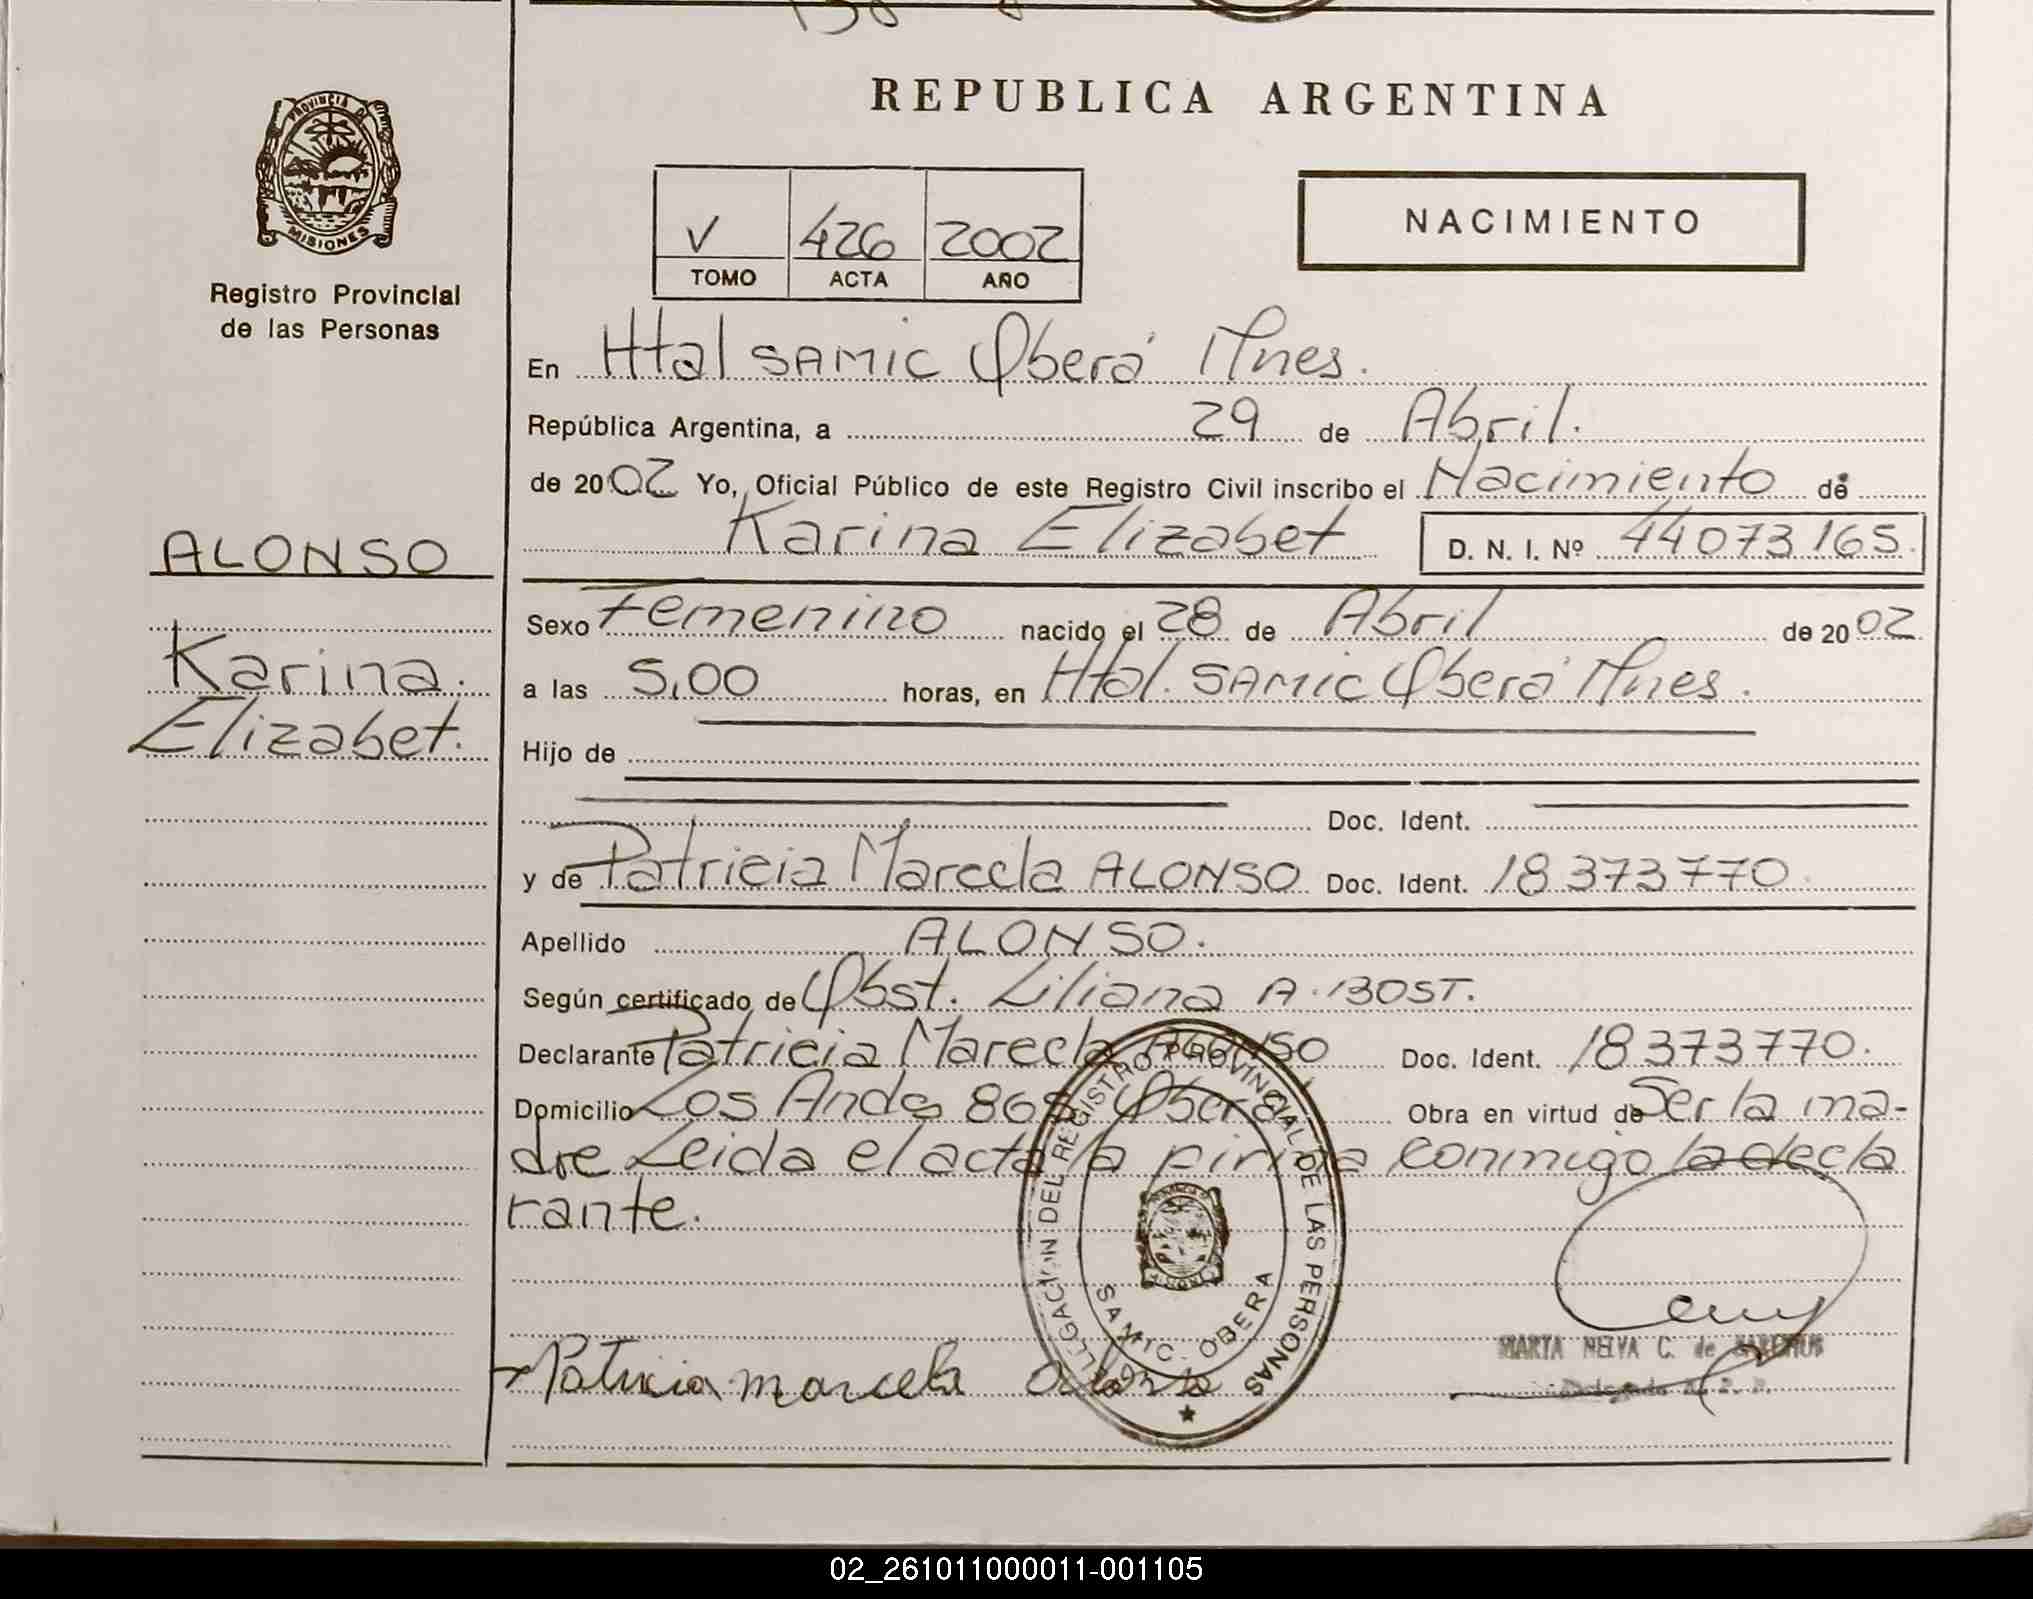 REPUBLICA ARGENTINA
PROVINCIA D
MISIONES
Registro Provincial
de las Personas
V 426 2002
TOMO ACTA AÑO
NACIMIENTO
En Htal SAMIC Oberá Mnes.
República Argentina, a 29 de Abril.
de 2002 Yo, Oficial Público de este Registro Civil inscribo el Nacimiento de
Karina Elizabet D. N. I. Nº 44073165.
ALONSO
Karina.
Elizabet.
Sexo Femenino nacido el 28 de Abril de 2002
a las 5,00 horas, en Htal. SAMIC Oberá Mnes.
Hijo de
Doc. Ident.
y de Patricia Marcela ALONSO Doc. Ident. 18373770.
Apellido ALONSO.
Según certificado de Obst. Liliana A. BOST.
Declarante Patricia Marcela Alonso Doc. Ident. 18373770.
Domicilio Los Andes 865 Oberá Obra en virtud de Ser la ma-
dre Leida el acta la firma conmigo la decla
rante.
DELEGACION DEL REGISTRO PROVINCIAL DE LAS PERSONAS
SAMIC. OBERA
Patricia marcela alonso
MARTA NELVA C. de